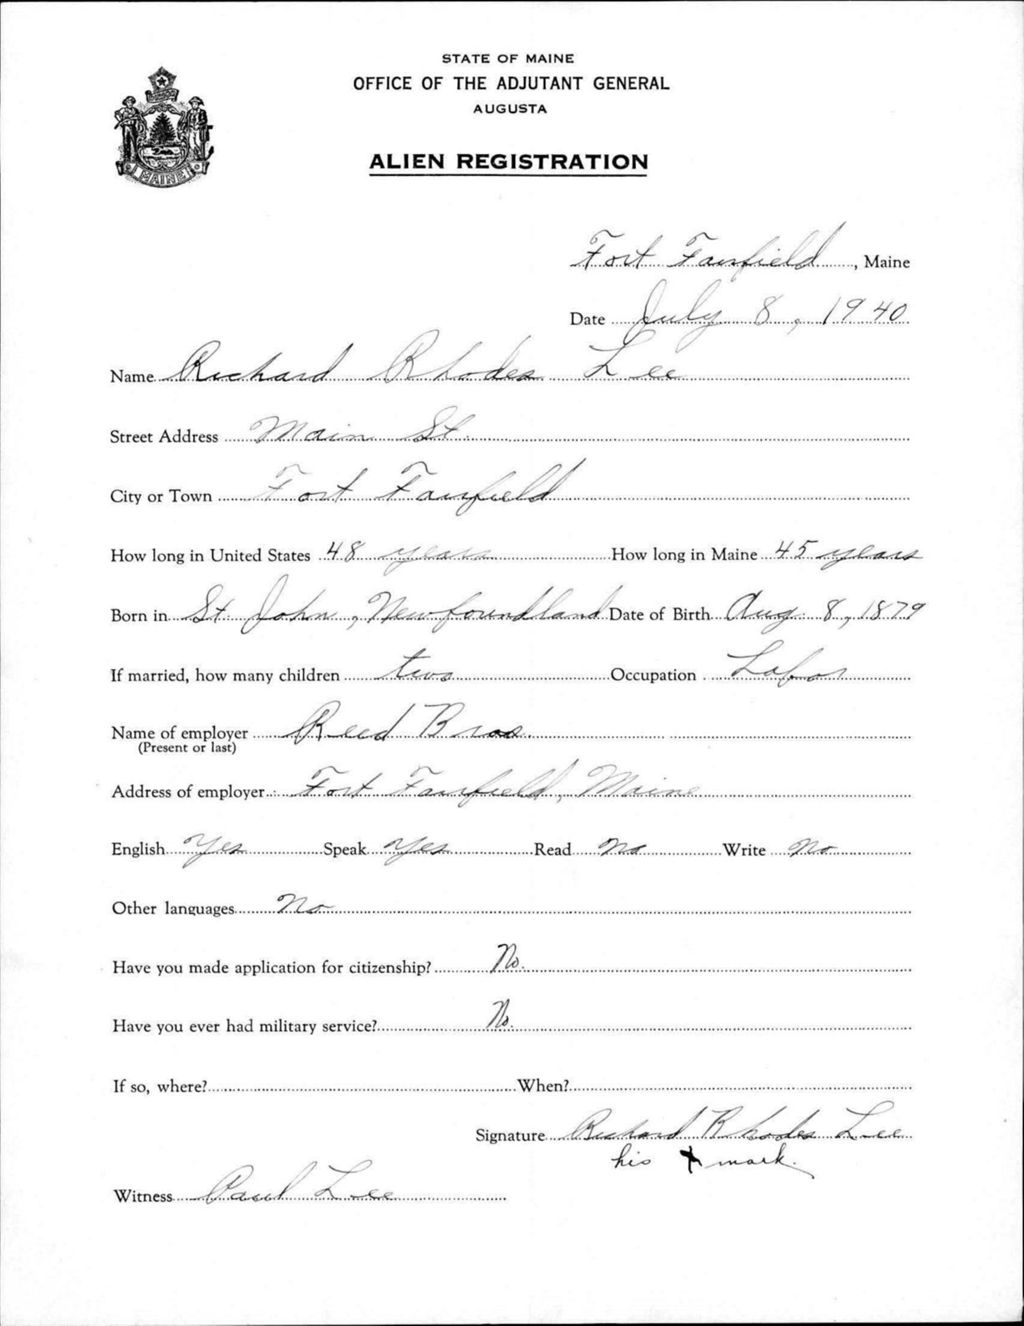 STATE OF MAINE
OFFICE OF THE ADJUTANT GENERAL
AUGUSTA
ALIEN REGISTRATION
MAINE
Fort Fairfield, Maine
Date July 8, 1940
Name Richard Rhodes Lee
Street Address Main St.
City or Town Fort Fairfield
How long in United States 48 years How long in Maine 45 years
Born in St. John, Newfoundland Date of Birth Aug. 8, 1879
If married, how many children two Occupation Labor
Name of employer Reed Bros.
(Present or last)
Address of employer Fort Fairfield, Maine
English Yes Speak Yes Read No Write No
Other languages No
Have you made application for citizenship? No.
Have you ever had military service? No.
If so, where? When?
Signature Richard Rhodes Lee
his x mark.
Witness Paul Lee